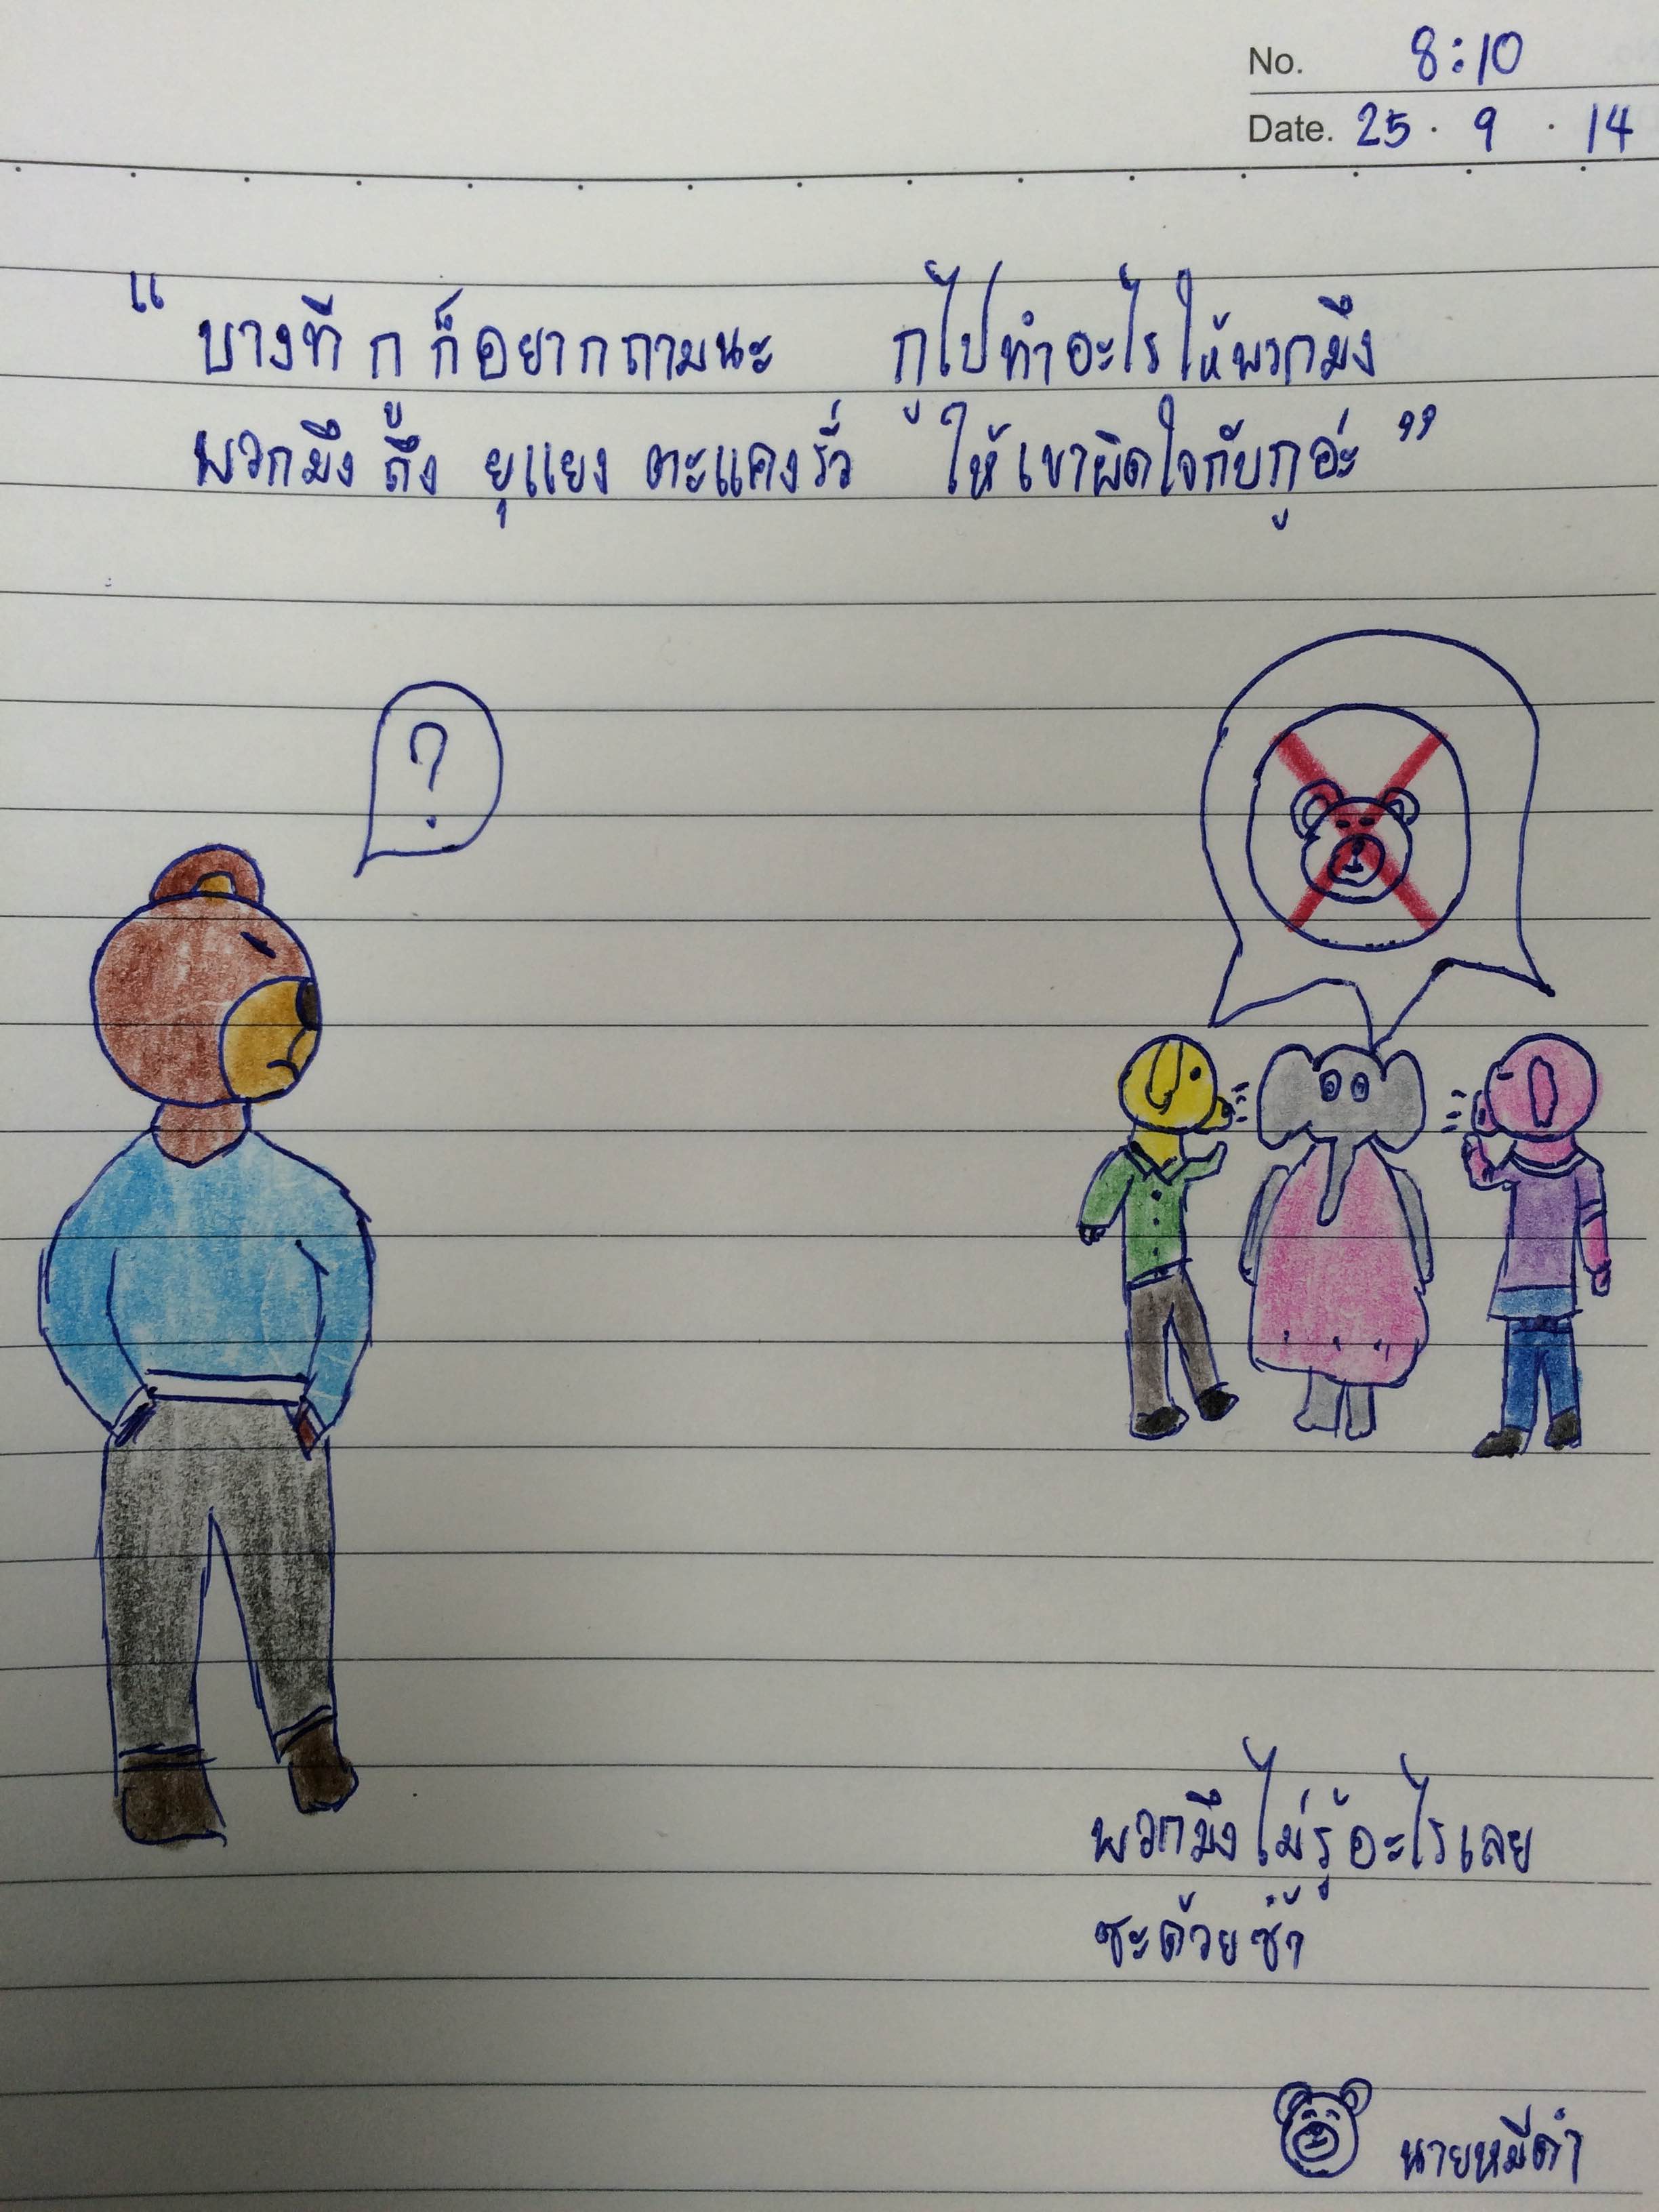 No. 8:10
Date. 25 . 9 . 14
“ บางทีกูก็อยากถามนะ กูไปทำอะไรให้พวกมึง
พวกมึงถึง ยุแยง ตะแคงรั่ว ให้เขาผิดใจกับกูอ่ะ ”
?
พวกมึงไม่รู้อะไรเลย
ซะด้วยซ้ำ
นายหมีดำ